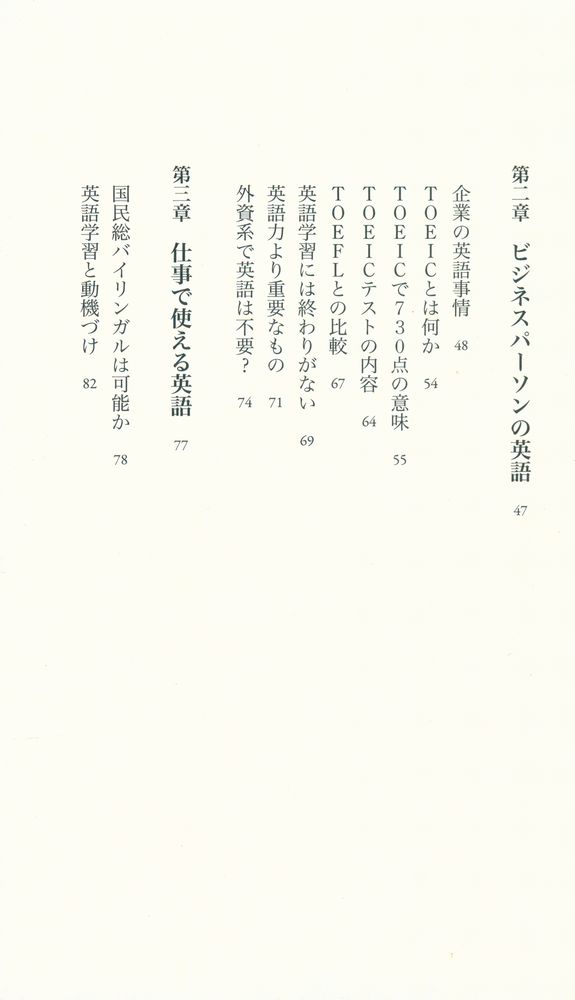 第二章　ビジネスパーソンの英語　47
企業の英語事情　48
ＴＯＥＩＣとは何か　54
ＴＯＥＩＣで７３０点の意味　55
ＴＯＥＩＣテストの内容　64
ＴＯＥＦＬとの比較　67
英語学習には終わりがない　69
英語力より重要なもの　71
外資系で英語は不要？　74
第三章　仕事で使える英語　77
国民総バイリンガルは可能か　78
英語学習と動機づけ　82